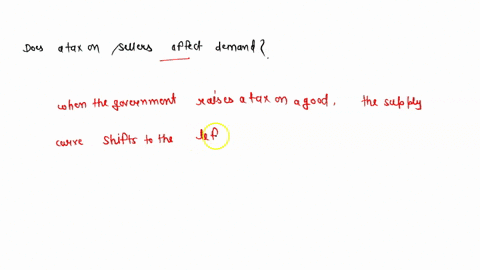 Does a tax on sellers affect demand?
when the government raises a tax on a good, the supply
curve shifts to the lef